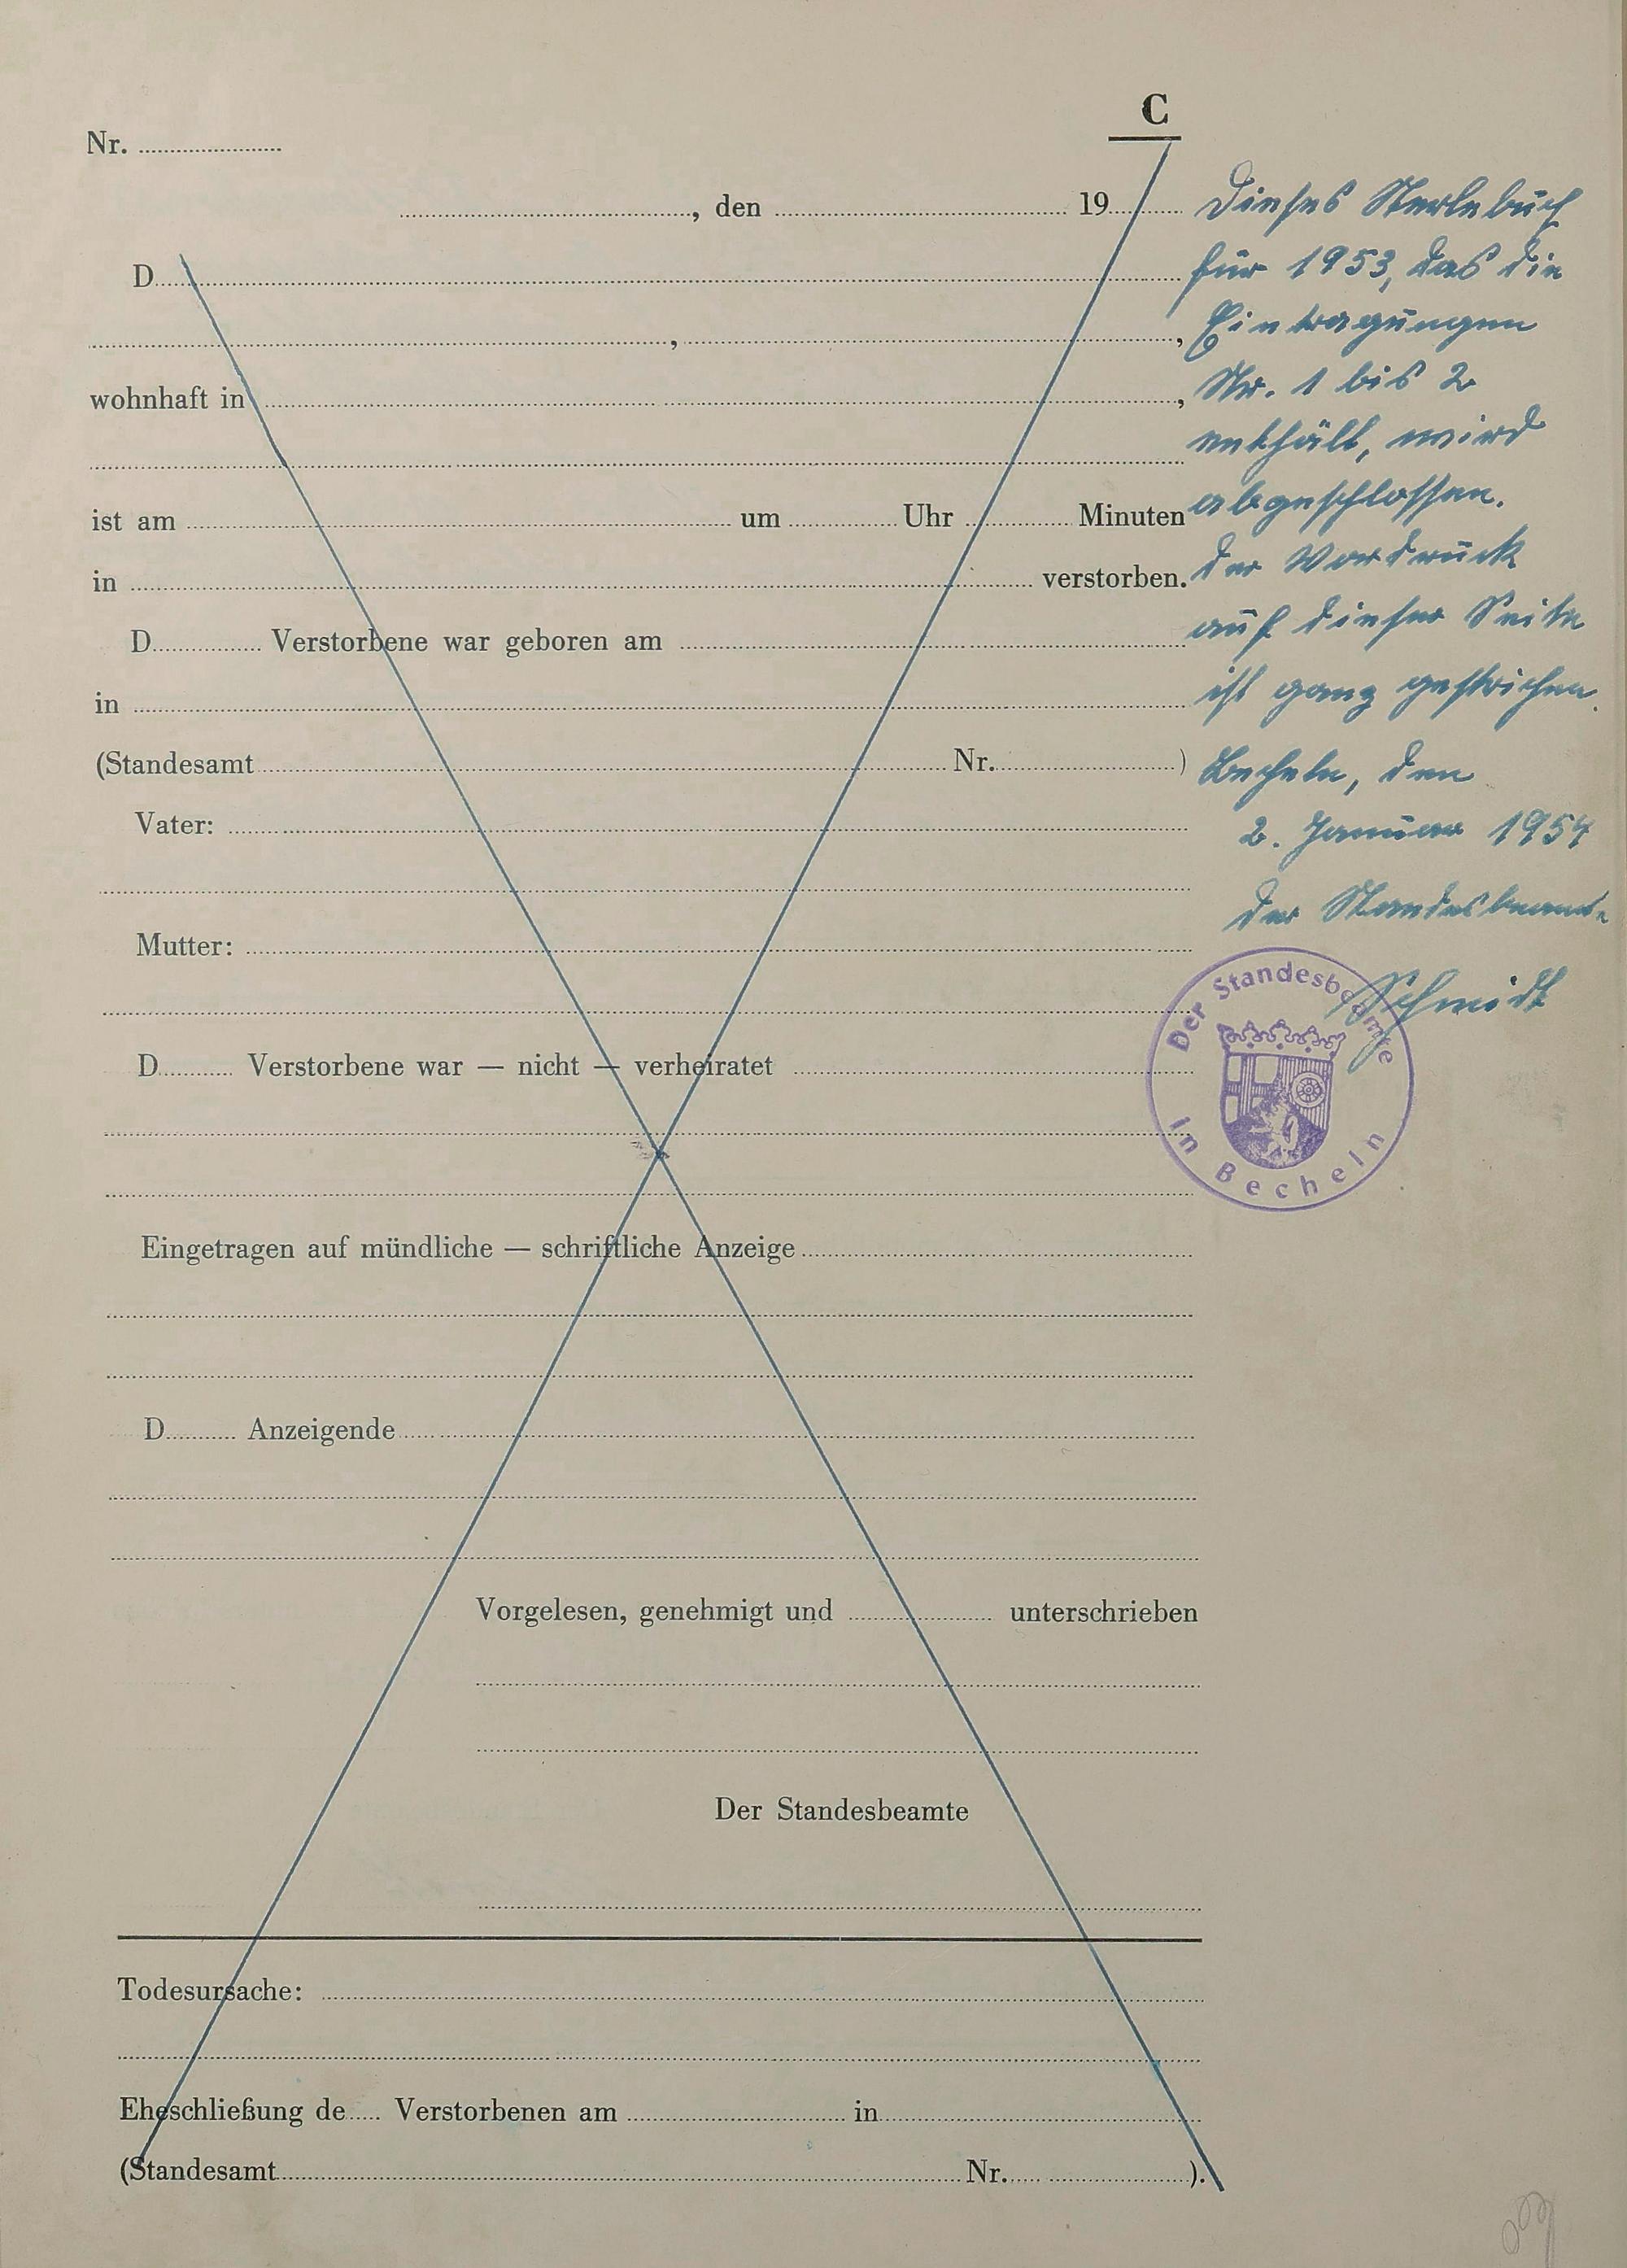 C
Nr. ....................
...................., den .................... 19..........
D....................
...................., ....................,
wohnhaft in ....................,
ist am .................... um ............ Uhr ............ Minuten
in .................... verstorben.
D............ Verstorbene war geboren am ....................
in ....................
(Standesamt .................... Nr. ....................)
Vater: ....................
Mutter: ....................
D............ Verstorbene war — nicht — verheiratet ....................
Eingetragen auf mündliche — schriftliche Anzeige ....................
D............ Anzeigende ....................
Vorgelesen, genehmigt und ............ unterschrieben
Der Standesbeamte
Todesursache: ....................
Eheschließung de..... Verstorbenen am .................... in ....................
(Standesamt .................... Nr. ....................).
Dieses Sterbebuch
für 1953, das die
Eintragungen
Nr. 1 bis 2
enthält, wird
abgeschlossen.
Der Vordruck
auf dieser Seite
ist ganz gestrichen.
Becheln, den
2. Januar 1954
Der Standesbeamte
Schmidt
Der Standesbeamte
in Becheln